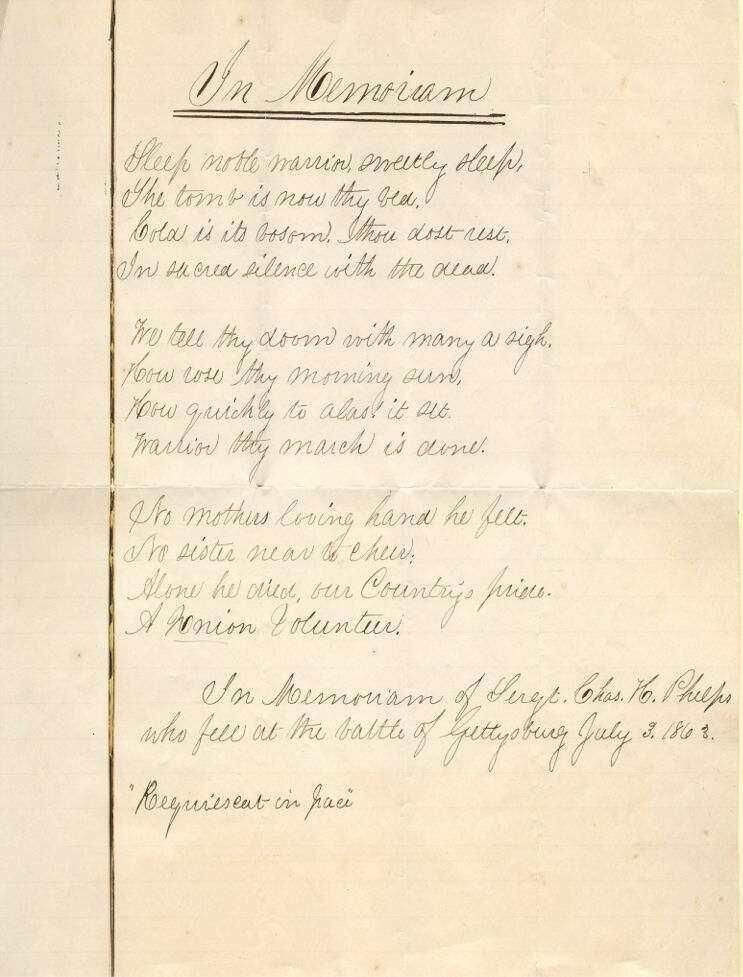 In Memoriam
Sleep noble warrior, sweetly sleep,
The tomb is now thy bed,
Cold is its bosom, thou dost rest,
In sacred silence with the dead.
We tell thy doom with many a sigh,
How rose thy morning sun,
How quickly to alas! it set.
Warrior thy march is done.
No mothers loving hand he felt.
No sister near to cheer,
Alone he died, our Country's pride.
A Union Volunteer.
In Memoriam of Sergt. Chas. H. Phelps
who fell at the battle of Gettysburg July 3. 1863.
"Requiescat in pace"